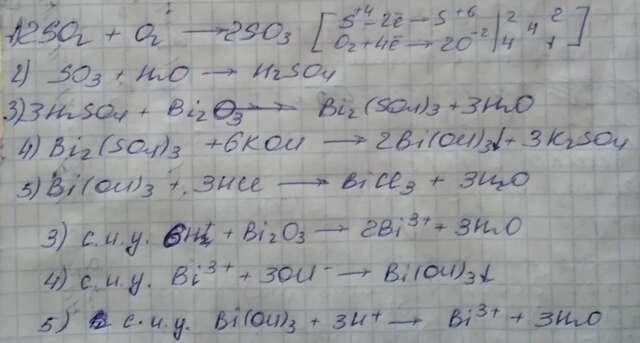 1) 2SO₂ + O₂ → 2SO₃ [S⁺⁴ - 2ē → S⁺⁶ | 2 4 2
O₂ + 4ē → 2O⁻² | 4 1]
2) SO₃ + H₂O → H₂SO₄
3) 3H₂SO₄ + Bi₂O₃ → Bi₂(SO₄)₃ + 3H₂O
4) Bi₂(SO₄)₃ + 6KOH → 2Bi(OH)₃↓ + 3K₂SO₄
5) Bi(OH)₃ + 3HCl → BiCl₃ + 3H₂O
3) с.и.у. 6H⁺ + Bi₂O₃ → 2Bi³⁺ + 3H₂O
4) с.и.у. Bi³⁺ + 3OH⁻ → Bi(OH)₃↓
5) с.и.у. Bi(OH)₃ + 3H⁺ → Bi³⁺ + 3H₂O